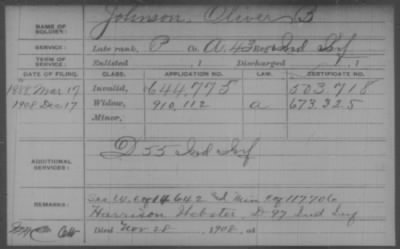 NAME OF SOLDIER: Johnson, Oliver B
SERVICE: Late rank, P Co. A, 43 Reg't Ind Inf
TERM OF SERVICE: Enlisted , 1 Discharged , 1
DATE OF FILING. CLASS. APPLICATION NO. LAW. CERTIFICATE NO.
1888 Mar 17 Invalid, 644,775 503,718
1908 Dec 17 Widow, 910,112 a 673,325
Minor,
ADDITIONAL SERVICES: D 55 Ind Inf
REMARKS: 14642 Min 117706
Harrison Webster, D-97 Ind Inf
Died Nov 28, 1908, at